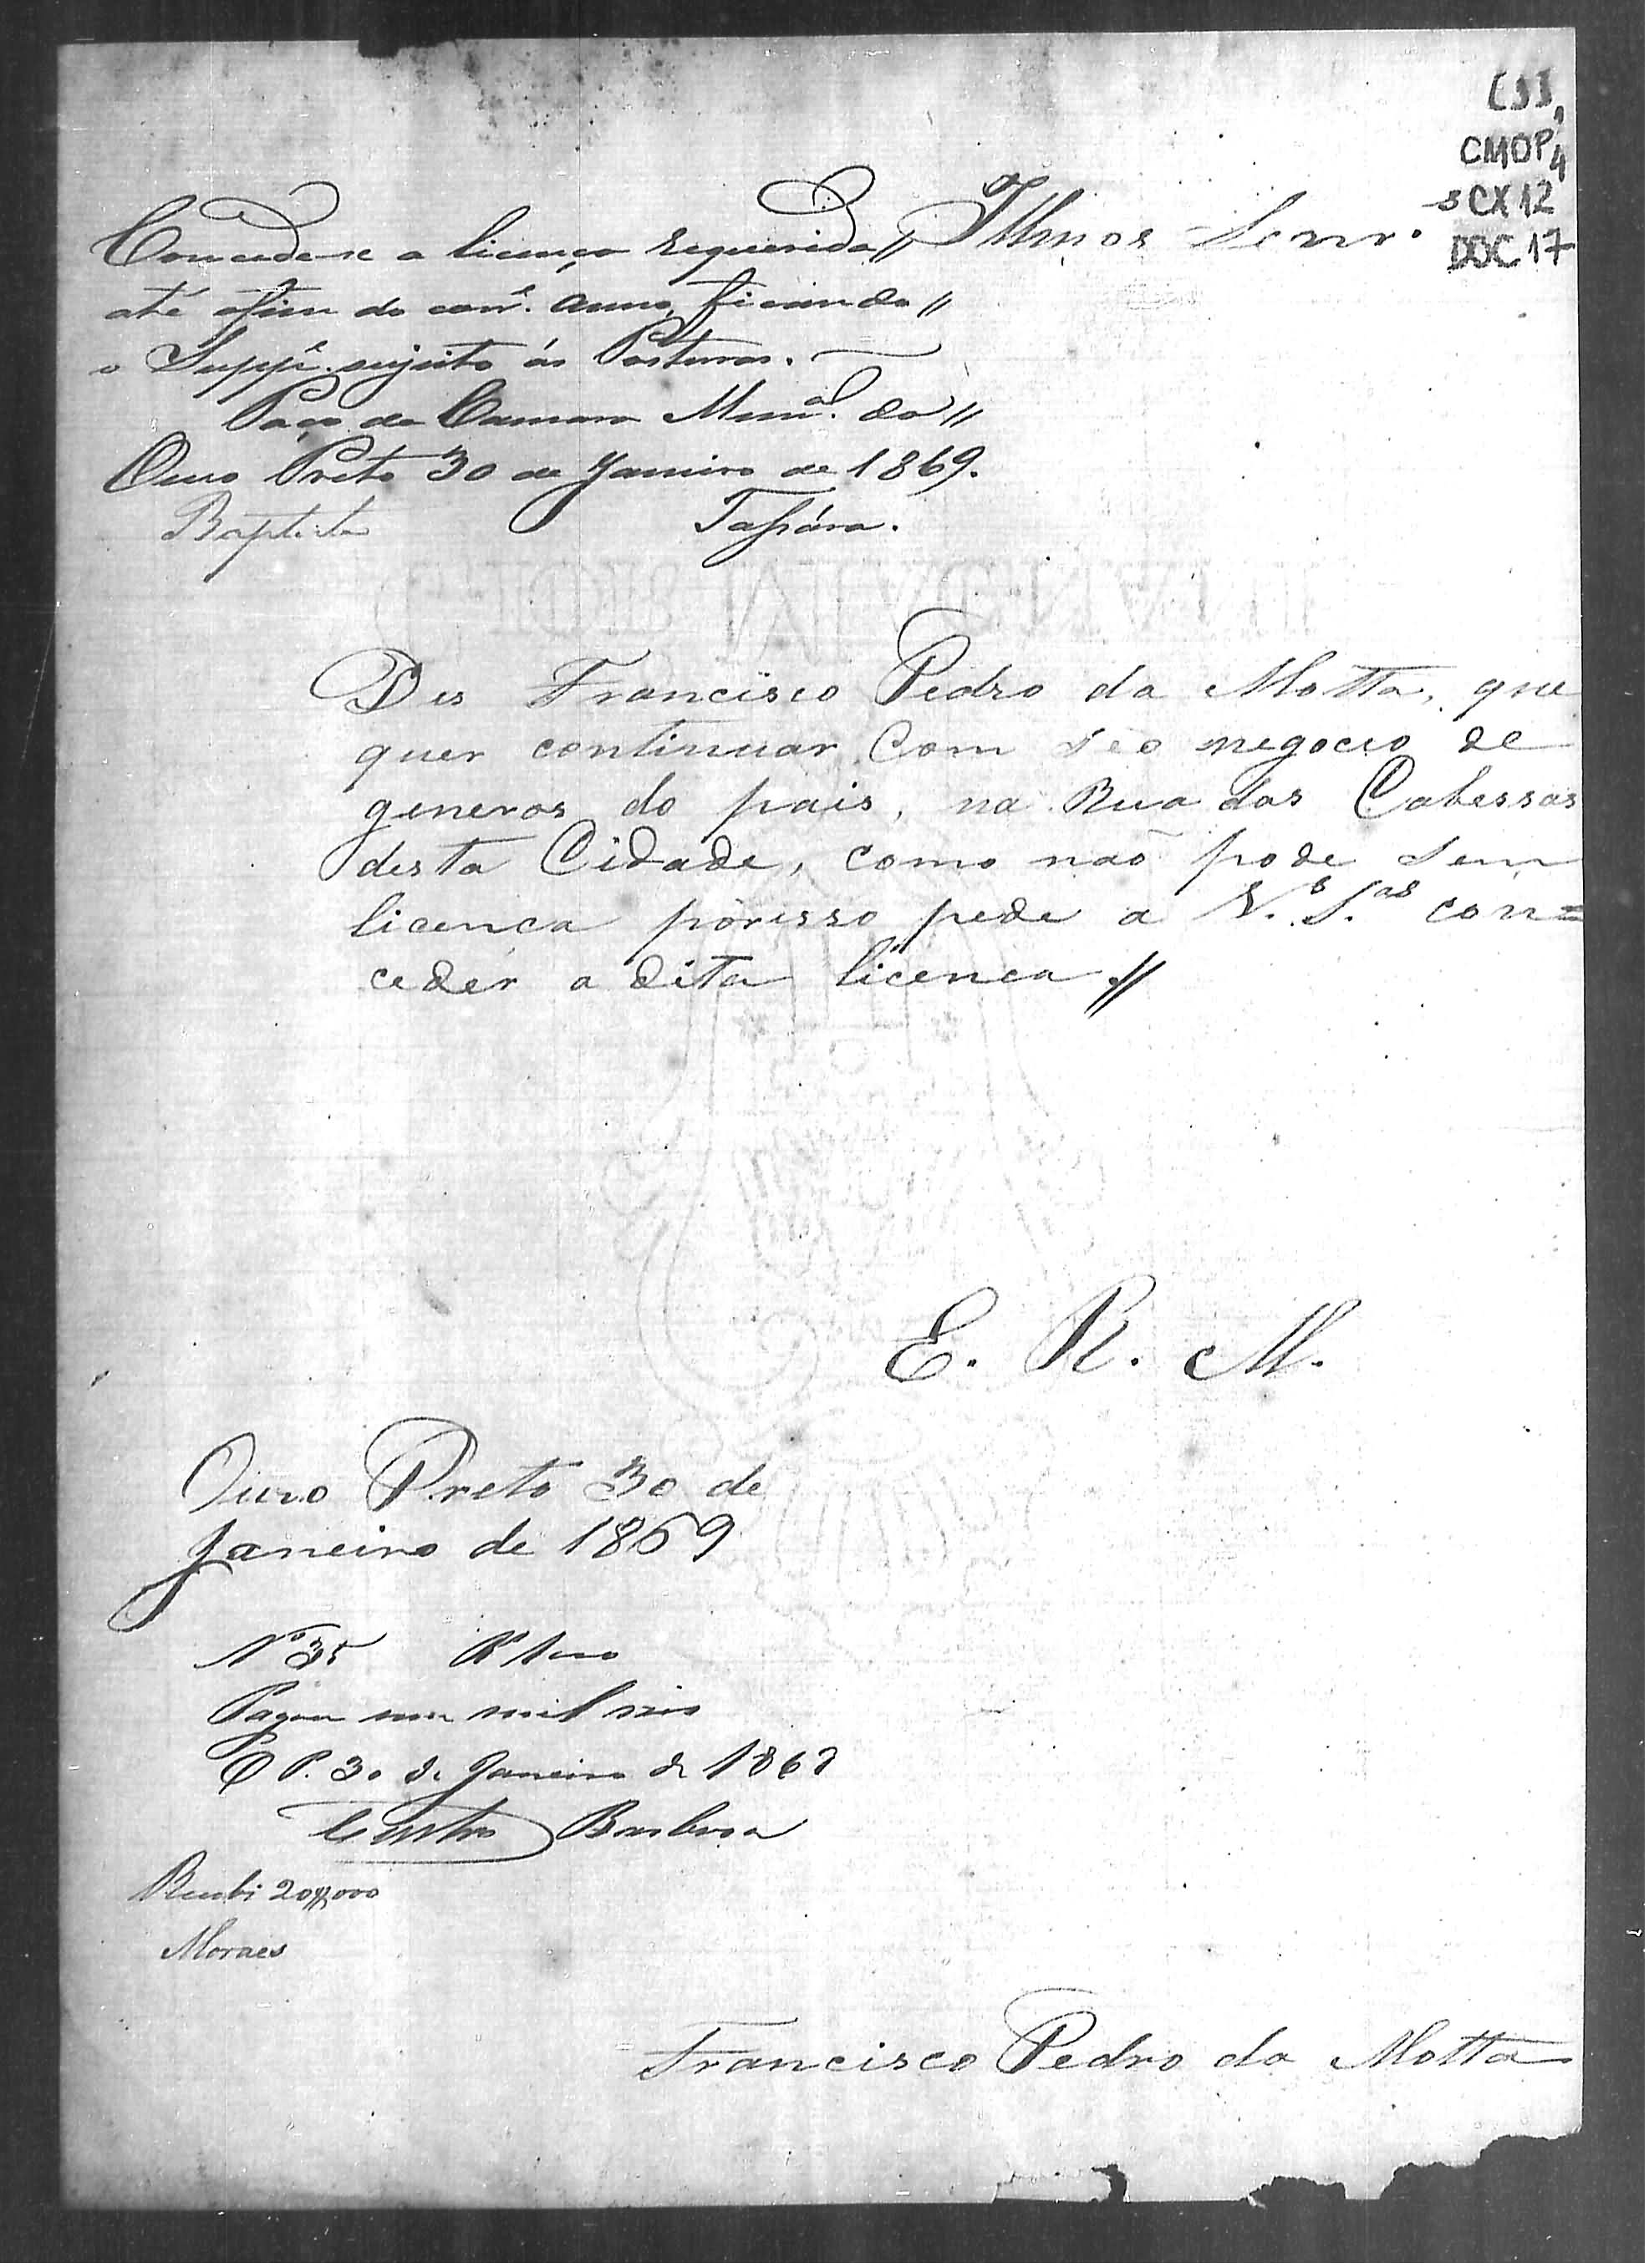 CMOP,
CX 12
DOC 17
Illmos Senr.
Concede-se a licença requerida //
até ofim do corr.e anno, ficando //
o Supp.e sujeito ás Posturas.
Paço da Camara Mun.al do //
Ouro Preto 30 de Janeiro de 1869.
Baptista Tassára.
Dis Francisco Pedro da Motta, que
quer continuar Com seo negocio de
generos do pais, na Rua das Cabessas
desta Cidade, como não pode sem
licença porisso pede a V.s S.as con=
ceder a dita licenca.//
E. R. M.
Ouro Preto 30 de
Janeiro de 1869
Nº 35
Pagou um mil reis
O P. 30 de Janeiro de 1869
Castro Barbosa
Recebi 20$000
Moraes
Francisco Pedro da Motta